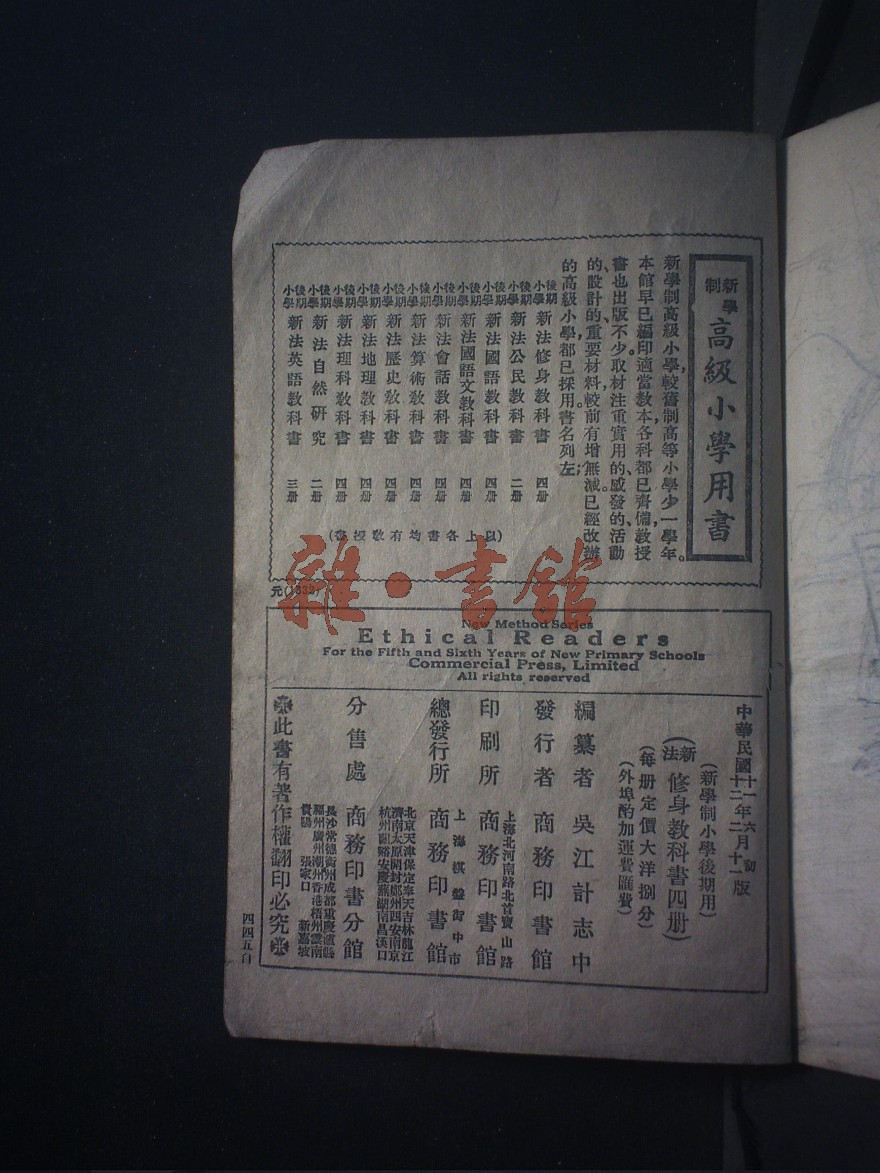 新學制
高級小學用書
新學制高級小學,較舊制高等小學少一學年。
本館早已編印適當教本,各科都已齊備,教授
書也出版不少。取材注重實用的、感發的、活動
的、設計的,重要材料較前有增無減。已經改辦
的高級小學,都已採用。書名列左:
後期小學 新法修身教科書 四册
後期小學 新法公民教科書 二册
後期小學 新法國語教科書 四册
後期小學 新法國語文教科書 四册
後期小學 新法會話教科書 四册
後期小學 新法算術教科書 四册
後期小學 新法歷史教科書 四册
後期小學 新法地理教科書 四册
後期小學 新法理科教科書 四册
後期小學 新法自然研究 二册
後期小學 新法英語教科書 三册
(以上各書均有教授書)
元(1332)
雜·書館
New Method Series
Ethical Readers
For the Fifth and Sixth Years of New Primary Schools
Commercial Press, Limited
All rights reserved
中華民國十一年六月初版
十二年二月十一版
(新學制小學後期用)
(新法修身教科書四册)
(每册定價大洋捌分)
(外埠酌加運費匯費)
編纂者 吳江計志中
發行者 商務印書館
印刷所 上海北河南路北首寶山路 商務印書館
總發行所 上海棋盤街中市 商務印書館
分售處 商務印書分館
北京天津保定奉天吉林龍江
濟南太原開封鄭州西安南京
杭州蘭谿安慶蕪湖南昌漢口
長沙常德衡州成都重慶瀘縣
福州廣州潮州香港梧州雲南
貴陽 張家口 新嘉坡
此書有著作權翻印必究
四四五白